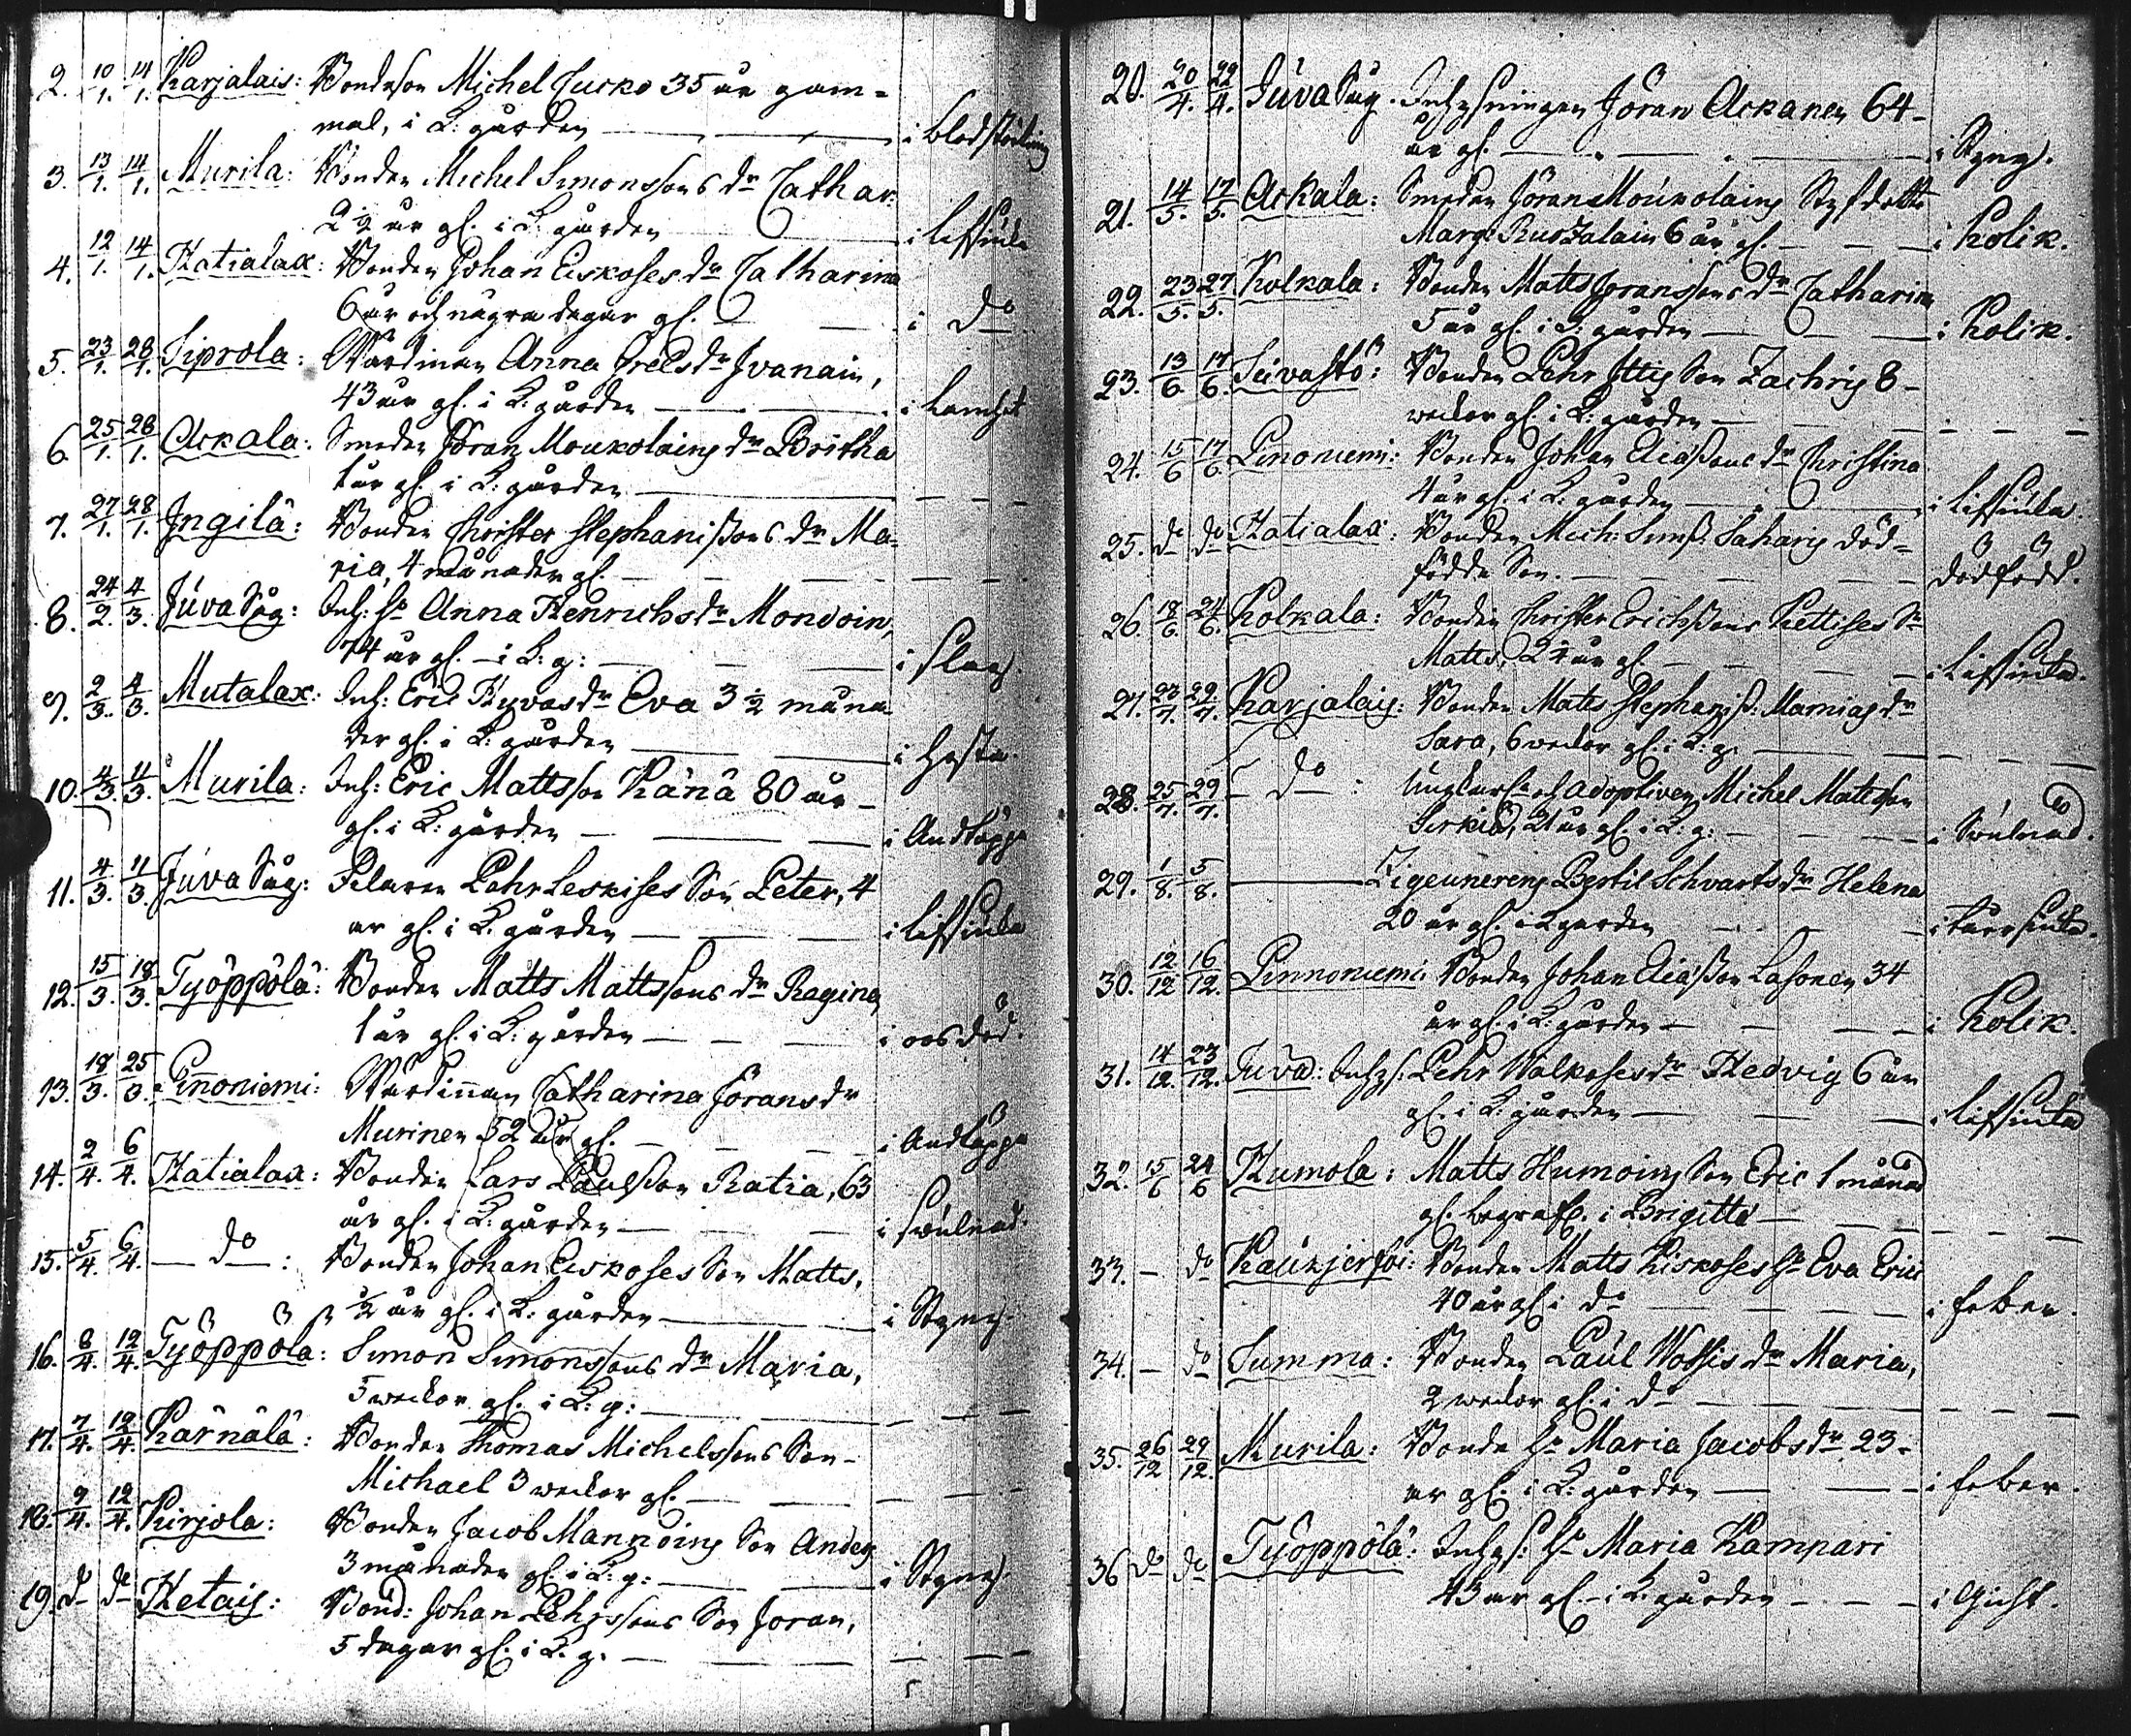 2. 10/1. 14/1. Karjalais: Bondeson Michel Turko 35 år gam-
mal, i K: gården — i blodstörtning
3. 13/1. 14/1. Murila: Bonden Michel Simonssons dr Cathar:
2 1/2 år gl. i K: gården
4. 12/1. 14/1. Hatialax: Bonden Johan Eskoses dr Catharina
6 år och några dagar gl. — i do
5. 23/1. 28/1. Siprola: Wärdinnan Anna Grelsdr Ivanain,
43 år gl. i K: gården
6. 25/1. 28/1. Askala: Smeden Jöran Moukolains dr Britha
1 år gl. i K: gården
7. 27/1. 28/1. Ingilä: Bonden Christer Stephanissons dr Ma-
ria, 4 månader gl.
8. 24/2. 4/3. Juva Såg: Inh: h. Anna Henrichsdr Mondoin,
74 år gl. i K: g: — i slag.
9. 2/3. 4/3. Mutalax: Inh: Eric Hyväs dr Eva 3 1/2 måna-
der gl. i K: gården — i hosta.
10. 4/3. 11/3. Murila: Inh: Eric Mattsson Känä 80 år
gl. i K: gården — i Andtäppa
11. 4/3. 11/3. Juva Såg: Pehr Leskises Son Peter, 4
år gl. i K: gården
12. 15/3. 18/3. Työppölä: Bonden Matts Mattssons dr Regina,
1 år gl. i K: gården
13. 18/3. 25/3. Pinnoniemi: Wärdinnan Catharina Göransdr
Murinen 52 år gl. — i Andtäppa
14. 2/4. 6/4. Hatialax: Bonden Lars Paulsson Ratia, 63
år gl. i K: gården — i swulnad.
15. 5/4. 6/4. — do: Bonden Johan Eskoses Son Matts,
1/2 år gl. i K: gården — i Styng.
16. 8/4. 12/4. Työppölä: Simon Simonssons dr Maria,
5 weckor gl. i K: g:
17. 7/4. 12/4. Kärnälä: Bonden Thomas Michelssons Son
Michael 3 weckor gl.
18. 9/4. 12/4. Kirjola: Bonden Jacob Mannoins Son Anders
3 månader gl. i K: g: — i Styng.
19. do do Hetais: Bond: Johan Pehrssons Son Jöran,
5 dagar gl. i K: g.
20. 20/4. 22/4. Juva Såg. Inhysningen Jöran Askanen 64
år gl. — i Styng.
21. 14/5. 17/5. Askala: Smeden Jöran Moukolains Styfdotter
Marg: 6 år gl. — i Kolik.
22. 23/5. 27/5. Kolkala: Bonden Matts Joranssons dr Catharina
5 år gl. i K: gården — i Kolik.
23. 13/6. 17/6. Bonden Pehr Ittis Son Zachris 8
weckor gl. i K: gården
24. 15/6. 17/6. Pinnoniemi: Bonden Johan Eliassons dr Christina
4 år gl. i K: gården
25. do do Hatialax: Bonden Mich: Simss: Saharis död-
födde Son. — dödfödd.
26. 18/6. 24/6. Kolkala: Bonden Christer Erichssons Kettises Sn
Matts, år gl.
27. 23/7. 29/7. Karjalais: Bonden Matts Stephaniss: Mamias dr
Sara, 6 weckor gl. i K: g:
28. 25/7. 29/7. — do: och adoptiven Michel Mattsson
Sirkiä, 21 år gl. i K: g: — i Swulnad.
29. 1/8. 5/8. — Zigeunerens Bertil Schvarts dr Helena
20 år gl. i K gården
30. 12/12 16/12. Pinnoniemi: Bonden Johan Eliasson Lasonen 34
år gl. i K: gården — i Kolik.
31. 14/12. 23/12. Juva: Inhys: Pehr Walkoses dr Hedvig 6 år
gl. i K: gården
32. 15/6 24/6 Humola: Matts Humoins Son Eric 1 månad
gl. begrafd. i Brigitta
33. — do Bonden Matts Kiskoses h. Eva Erics
40 år gl. i do — i feber.
34. — do Summa: Bonden Paul Wossis dr Maria,
2 weckor gl. i do
35. 26/12 29/12. Murila: Bonde h. Maria Jacobsdr 23
år gl. i K: gården — i feber.
36 do do Työppölä: Inhys: h. Maria Kampari
43 år gl. i K: gården — i Gicht.